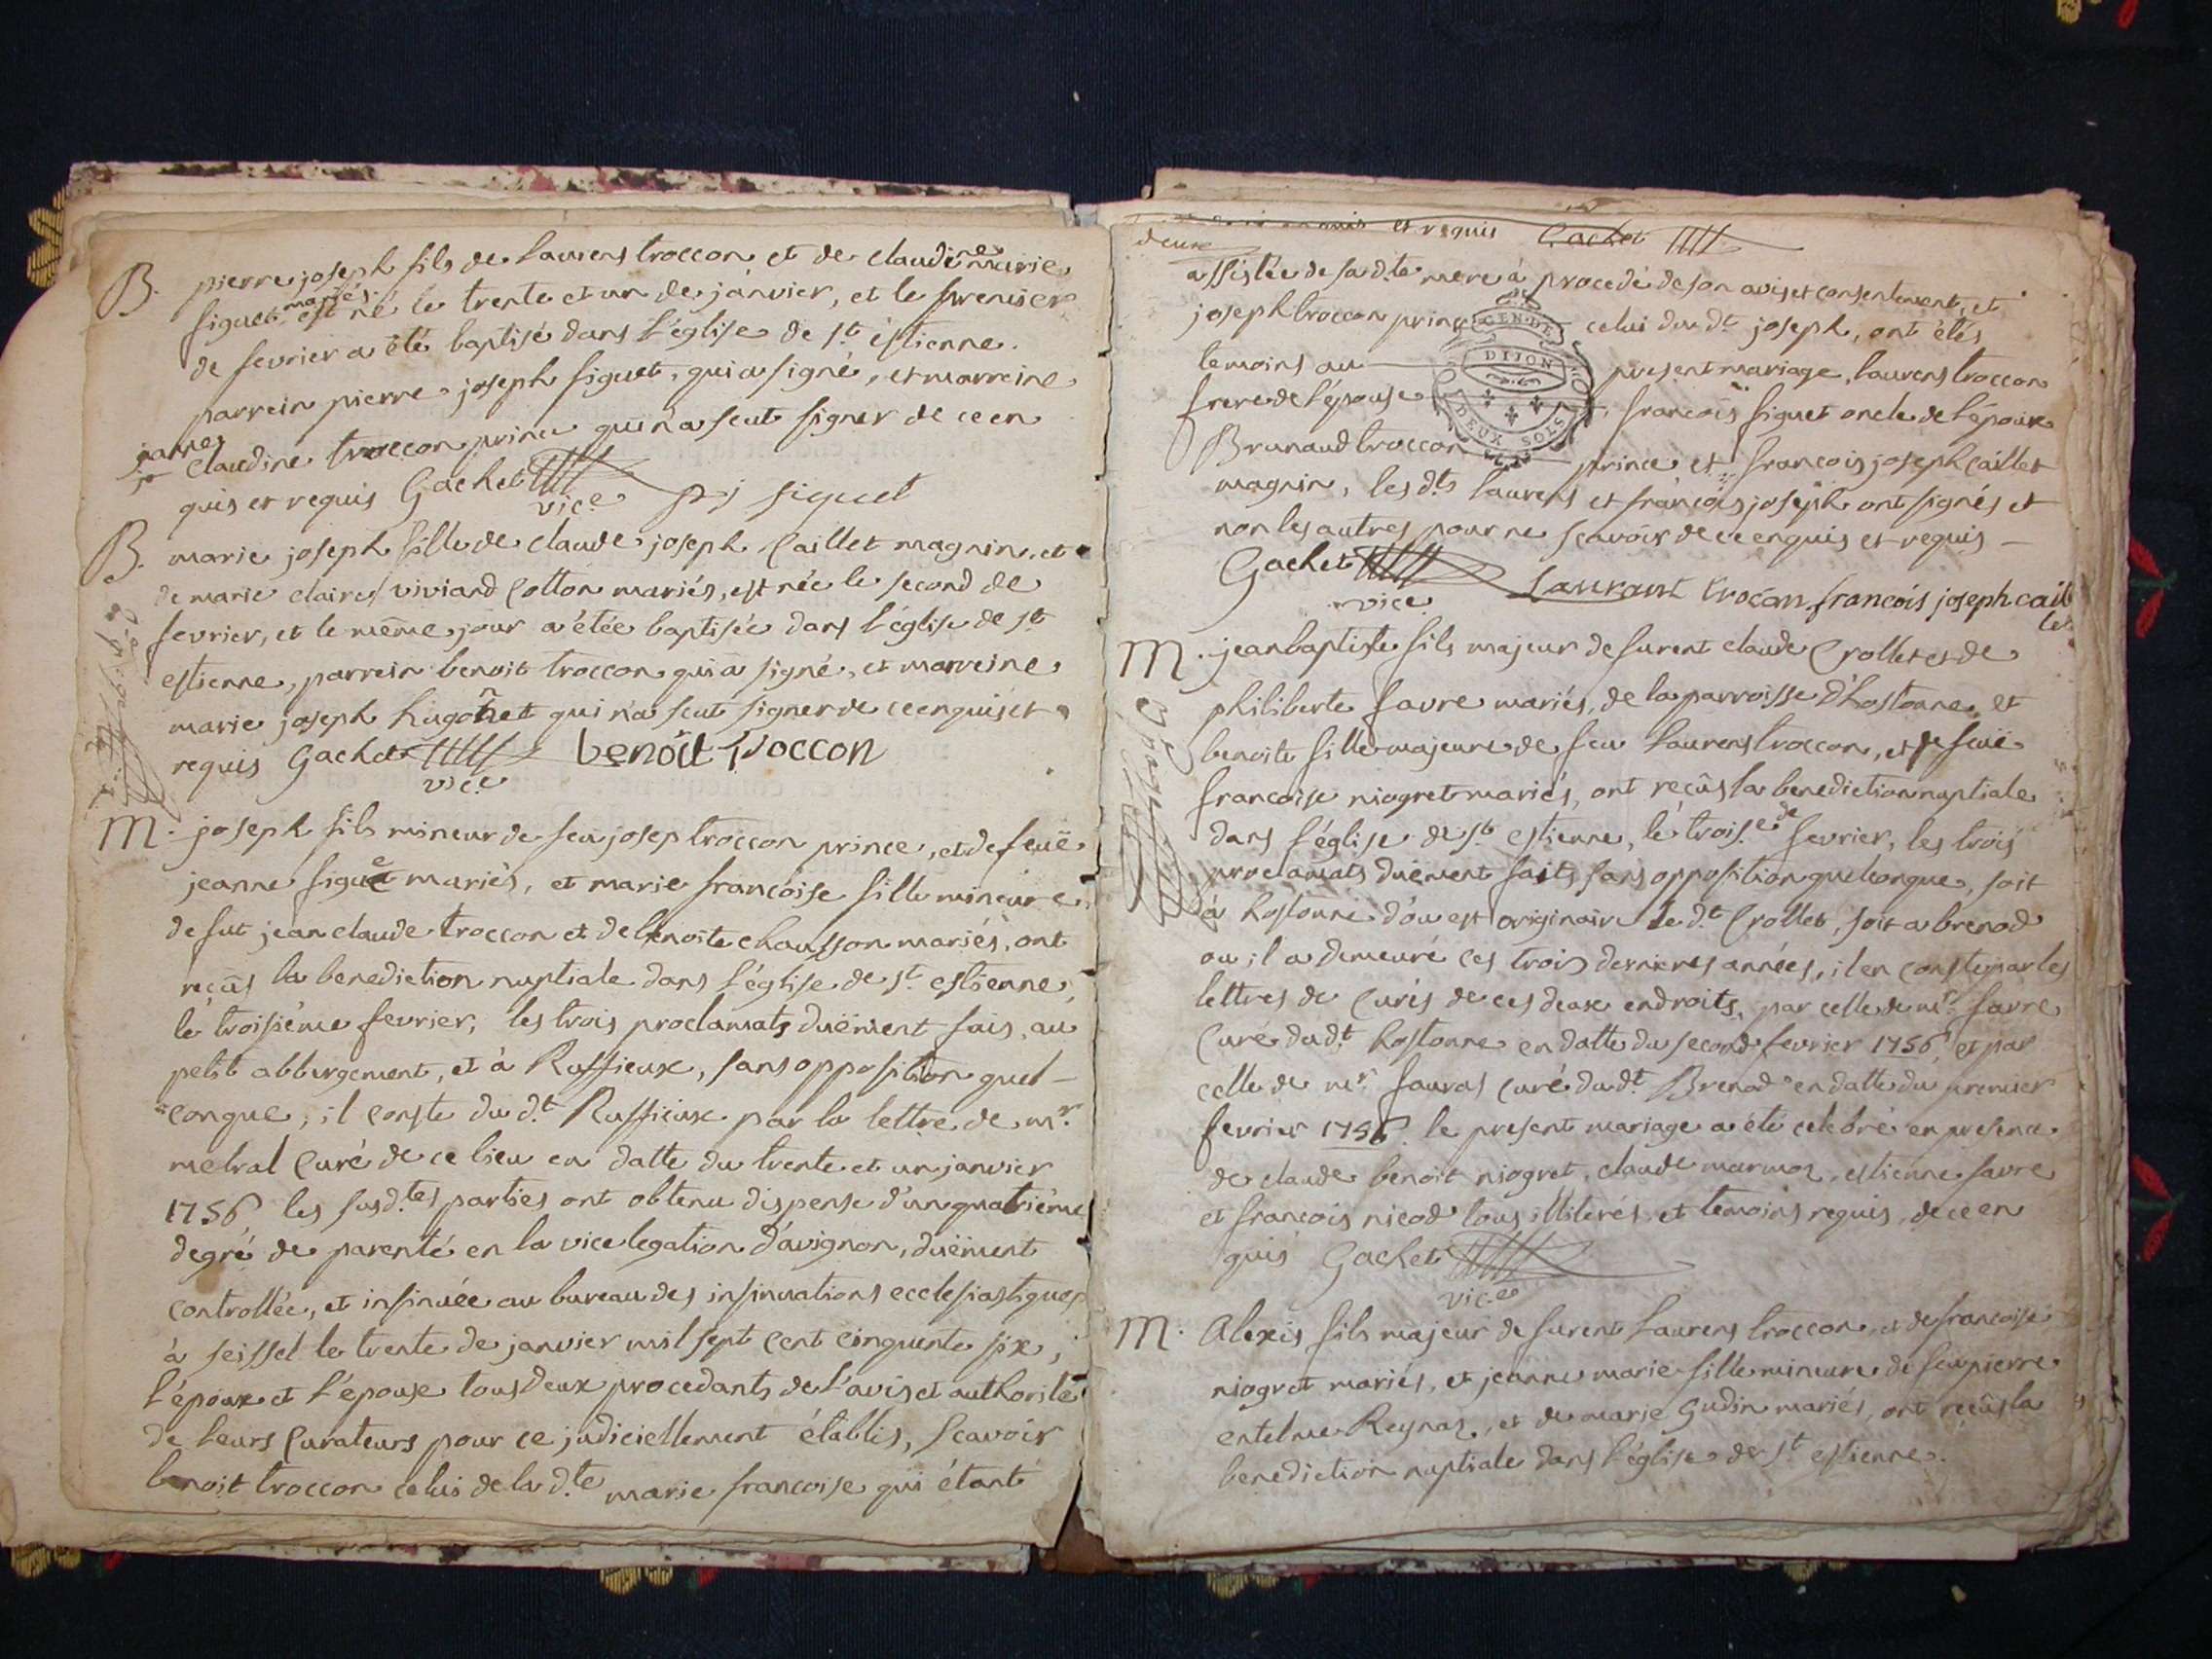 B. pierre joseph fils de laurens troccon et de claudine marie
siguet mariés est né le trente et un de janvier, et le premier
de fevrier a été baptisé dans l'église de st éstienne.
parrein pierre joseph siguet, qui a signé, et marreine
claudine troccon prince qui n'a sçut signer de ce en
quis et requis Gachet vice pj siguet
B. marie joseph fille de claude joseph Caillet magnin, et
de marie claire viviand Cotton mariés, est née le second de
fevrier, et le même jour a étée baptisée dans l'église de st
estienne, parrein benoit troccon qui a signé, et marreine
marie joseph hugonet qui n'a sçut signer de ce enquis et
requis Gachet vice benoit troccon
M. joseph fils mineur de feu josep troccon prince, et de feuë
jeanne siguet mariés, et marie françoise fille mineure
de fut jean claude troccon et de benoite chausson mariés, ont
reçûs la benediction nuptiale dans l'église de st estienne,
le troisiéme fevrier, les trois proclamats duëment fais, au
petit abbergement, et à Ruffieux, sans opposition quel-
conque, il conste du d.t Ruffieux par la lettre de mr
metral Curé de ce lieu en datte du trente et un janvier
1756, les susd.tes parties ont obtenu dispense d'un quatriéme
degré de parenté en la vice legation d'avignon, duëment
controllée, et insinuée au bureau des insinuations ecclesiastiques
à seissel le trente de janvier mil sept cent cinquente six,
l'époux et l'épouse tous deux procedants de l'avis et authorité
de leurs Curateurs pour ce judiciellement établis, scavoir
benoit troccon celui de la d.te marie françoise qui étant
et requis Gachet
deux
assistée de sa d.te mere à procedé de son avis et consentement, et
joseph troccon prince celui du d.t joseph, ont étés
GEN. DE
DIJON
DEUX SOLS
temoins au present mariage, laurens troccon
frere de l'épouse, françois siguet oncle de l'époux
Brunaud troccon prince et françois joseph Caillet
magnin, les d.ts laurens et françois joseph ont signés et
non les autres pour ne scavoir de ce enquis et requis
Gachet vice Laurant trocon françois joseph cail
let
M. jean baptiste fils majeur de furent claude Crollet et de
philiberte favre mariés, de la parroisse d'hostonne, et
benoite fille majeure de feu laurens troccon, et de feuë
françoise niogret mariés, ont reçûs la benediction nuptiale
dans l'église de st estienne, le trois.e de fevrier, les trois
proclamats duëment faits sans opposition quelconque, soit
à hostonne d'ou est originaire le d.t Crollet, soit a brenod
ou il a demeuré ces trois dernieres années, il en conste par les
lettres de Curés de ces deux endroits, par celle de mr favre
Curé du d.t hostonne en datte du second fevrier 1756, et par
celle de mr fauras curé du d.t Brenod en datte du premier
fevrier 1756. le present mariage a été celebré en presence
de claude benoit niogret, claude marmoz, estienne favre
et françois nicod tous illiterés et temoins requis, de ce en
quis Gachet vice
M. Alexis fils majeur de furent Laurens troccon, et de françoise
niogret mariés, et jeanne marie fille mineure de feu pierre
entelme Reynaz, et de marie Gudin mariés, ont reçûs la
benediction nuptiale dans l'église de st estienne.